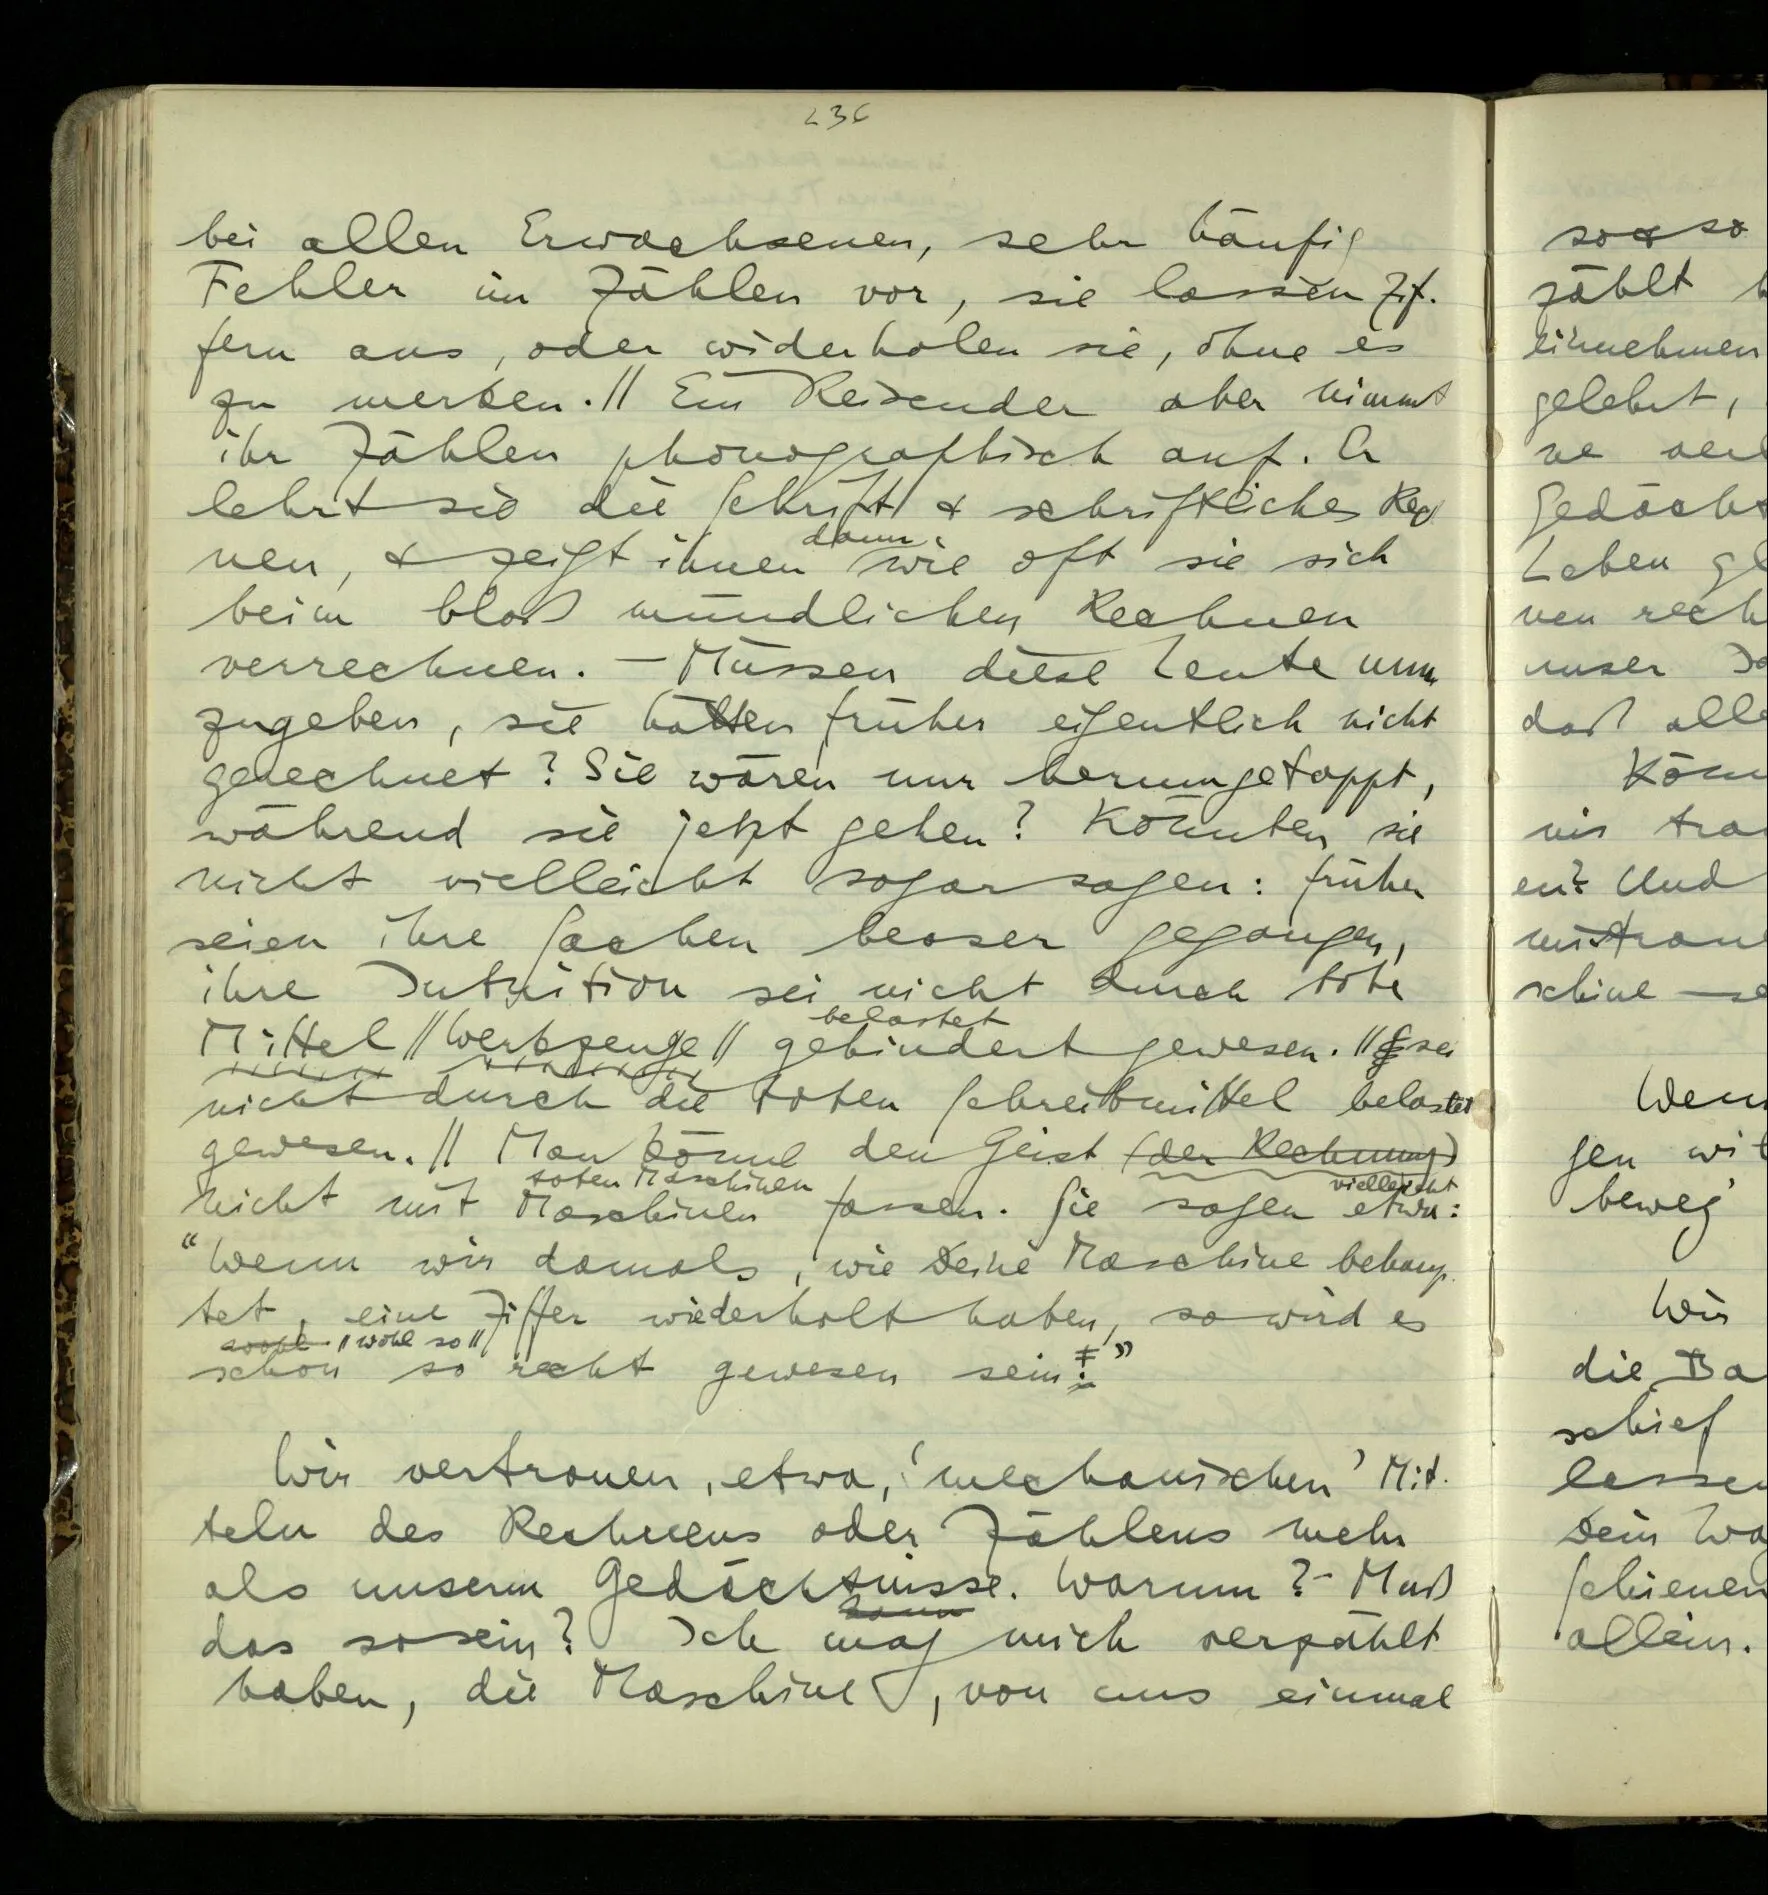 236
bei allen Erwachsenen, sehr häufig
Fehler im Zählen vor, sie lassen Zif-
fern aus, oder widerholen sie, ohne es
zu merken. // Ein Reisender aber nimmt
ihr Zählen phonographisch auf. Er
lehrt sie die Schrift & schriftliches Rech
dann
nen, & zeigt ihnen wie oft sie sich
beim bloß mündlichen Rechnen
verrechnen. – Müssen diese Leute nun
zugeben, sie hätten früher eigentlich nicht
gerechnet? Sie wären nur herumgetappt,
während sie jetzt gehen? Könnten sie
nicht vielleicht sogar sagen: früher
seien ihre Sachen besser gegangen,
ihre Intuition sei nicht durch tote
belastet
Mittel // Werkzeuge // gehindert gewesen. // sei
nicht durch die toten Schreibmittel belastet
gewesen. // Man könne den Geist (der Rechnung)
toten Maschinen vielleicht
nicht mit Maschinen fassen. Sie sagen etwa:
“Wenn wir damals, wie Deine Maschine behaup-
tet, eine Ziffer wiederholt haben, so wird es
wohl // wohl so //
schon so recht gewesen sein!”
Wir vertrauen, etwa, ‘mechanischen’ Mit-
teln des Rechnens oder Zählens mehr
als unserm Gedächtnisse. Warum? – Muß
kann
das so sein? Ich mag mich verzählt
haben, die Maschine, von uns einmal
so & so
zählt
einnehmen
gelehrt,
Leben
unser
daß alle
en? Und
schine – se
gen wit
beweg
Wir
die Ba
schief
lassen
Dein
Schienen
allein.